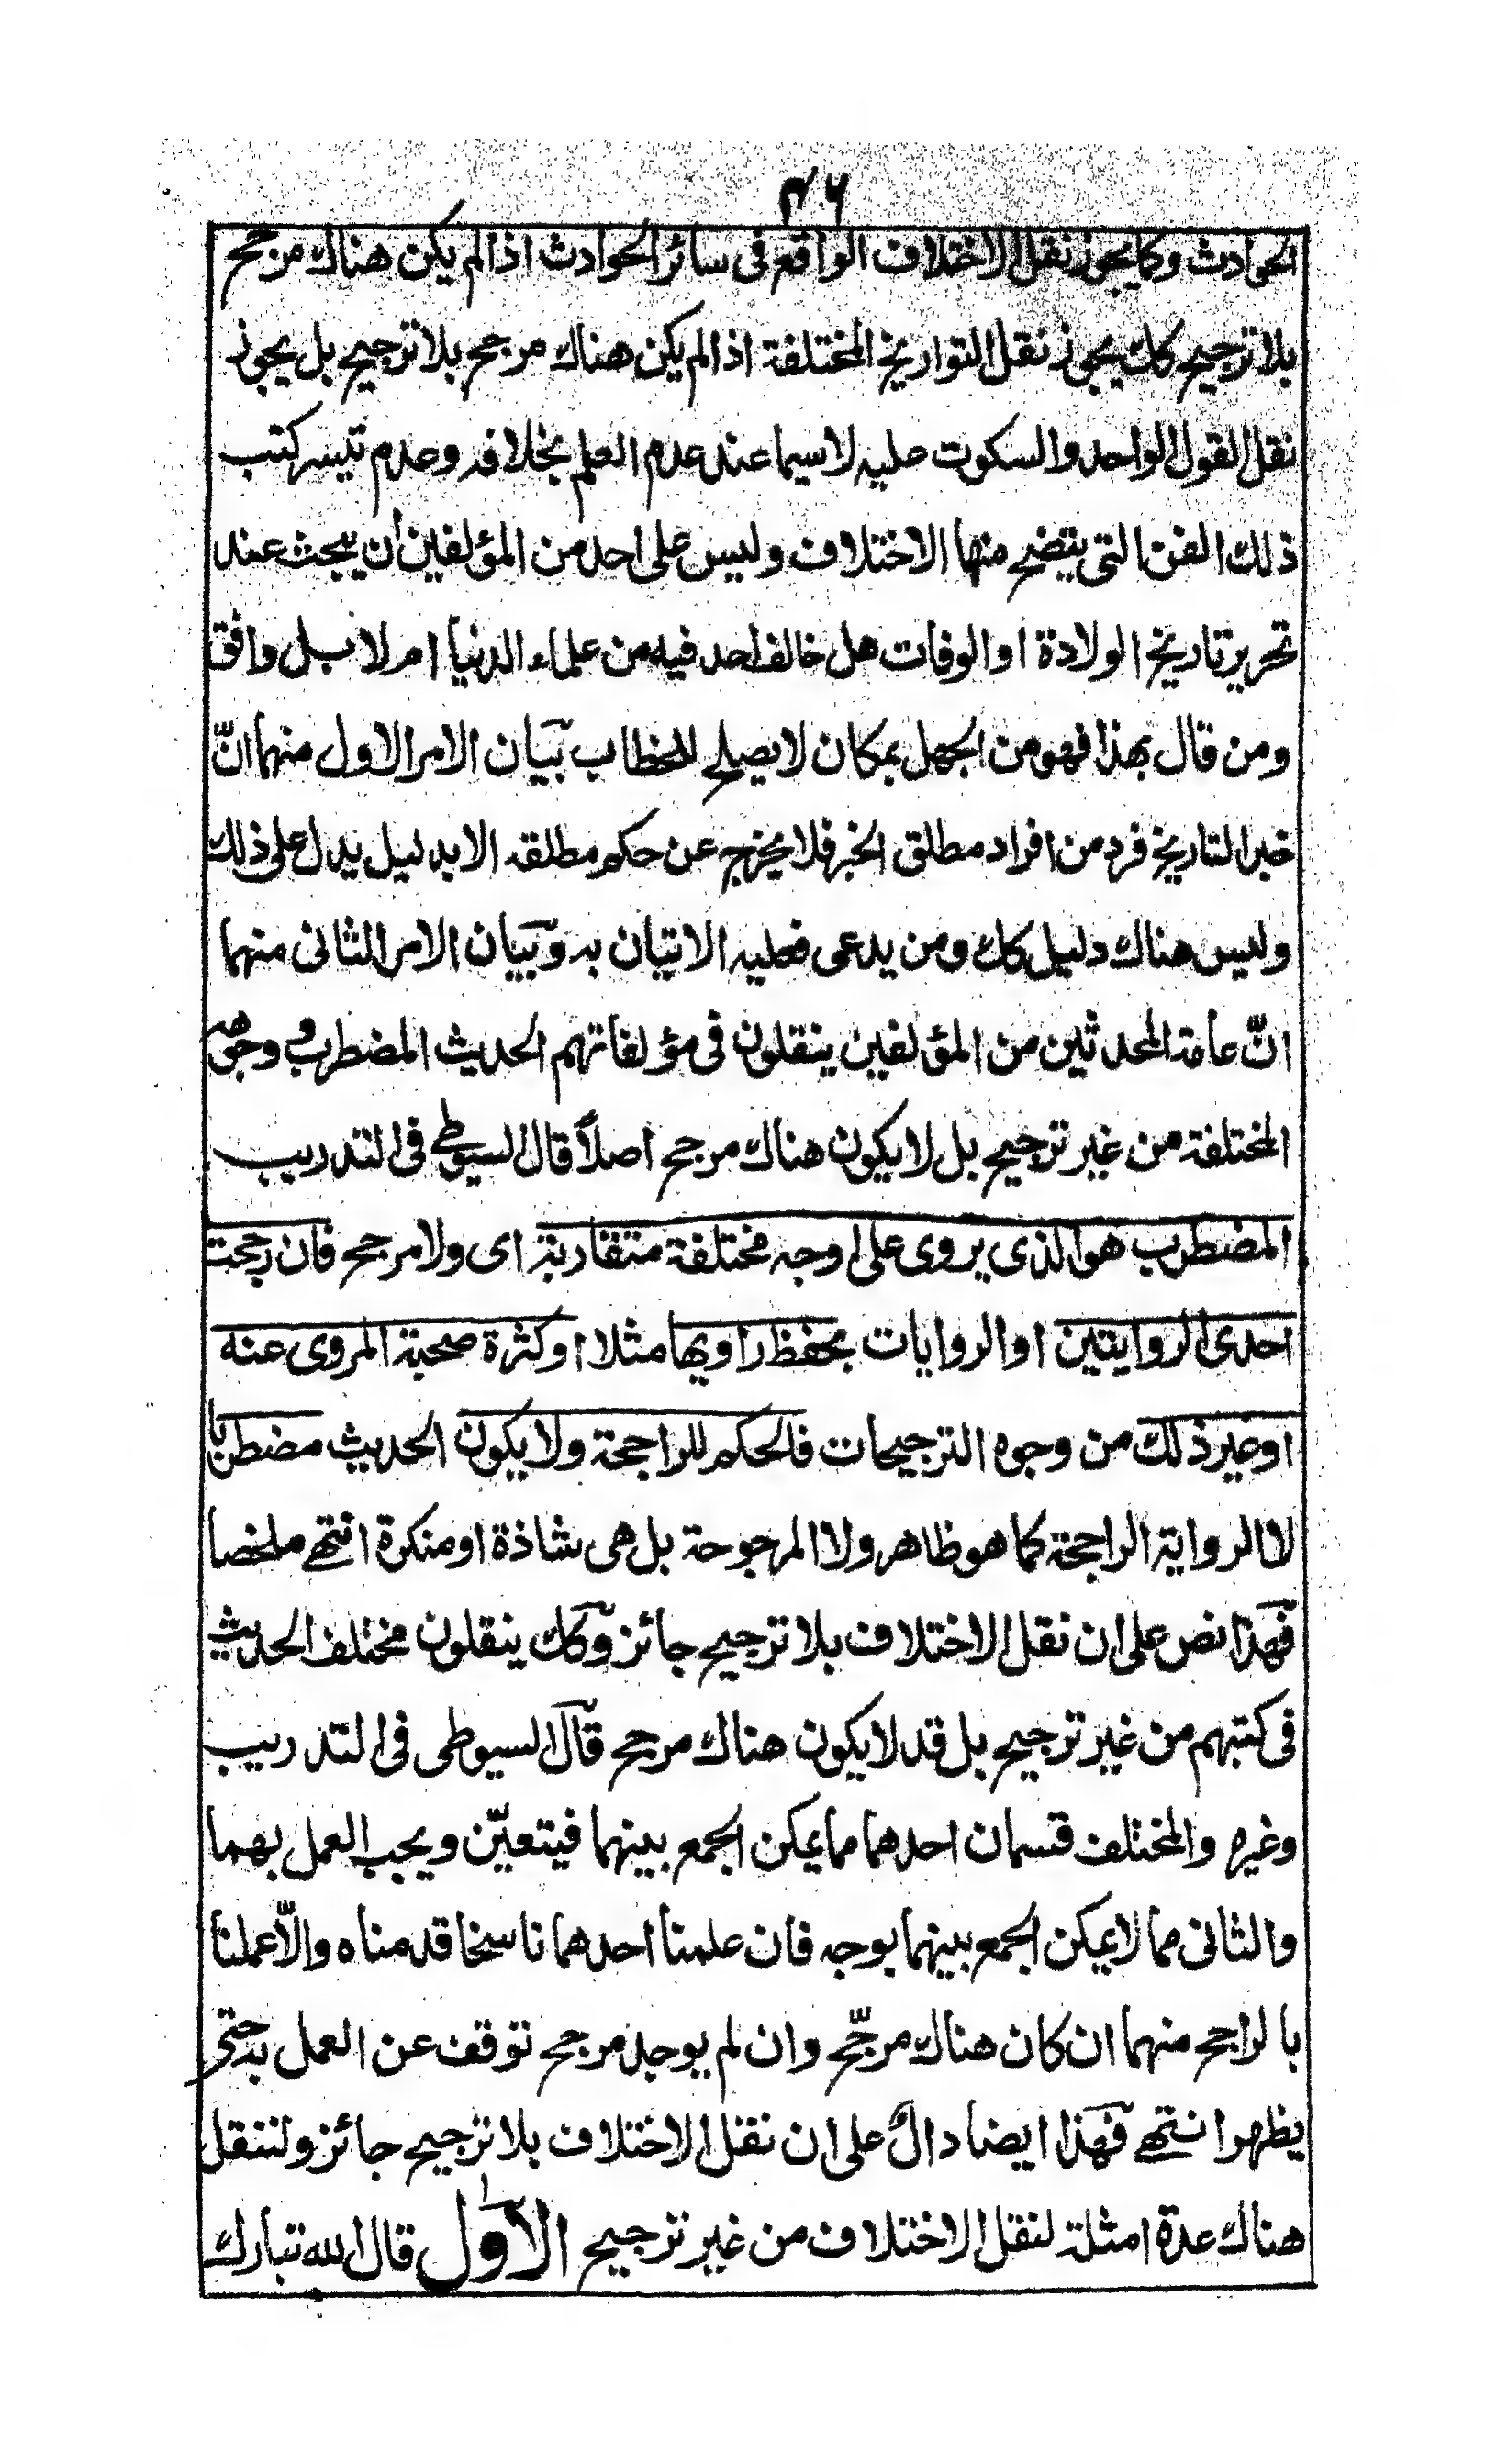 ۴۶
الحوادث وكما يجوز نقل الاختلاف الواقع فى سائر الحوادث اذا لم يكن هناك مرجح
بلا ترجيح كك يجوز نقل التواريخ المختلفة اذا لم يكن هناك مرجح بلا ترجيح بل يجوز
نقل القول الواحد والسكوت عليه لاسيما عند عدم العلم بخلافه وعدم تيسر كتب
ذلك الفن التى يتضح منها الاختلاف وليس على احد من المؤلفين أن يبحث عند
تحرير تاريخ الولادة او الوفات هل خالف احد فيه من علماء الدنيا ام لا بل وافق
ومن قال بهذا فهو من الجهل بمكان لا يصلح للخطاب بيان الامر الاول منهما انّ
خبر التاريخ فرد من افراد مطلق الخبر فلا يخرج عن حكم مطلقه الا بدليل يدل على ذلك
وليس هناك دليل كك ومن يدعى فعليه الاتيان به وبيان الامر الثانى منهما
انّ عامة المحدثين من المؤلفين ينقلون فى مؤلفاتهم الحديث المضطرب ووجوهه
المختلفة من غير ترجيح بل لا يكون هناك مرجح اصلاً قال السيوطى فى التدريب
المضطرب هو الذى يروى على اوجه مختلفة متقاربة اى ولا مرجح فان رجحت
احدى الروايتين او الروايات بحفظ راويها مثلا او كثرة صحبة المروى عنه
او غير ذلك من وجوه الترجيحات فالحكم للراجحة ولا يكون الحديث مضطربا
لا الرواية الراجحة كما هو ظاهر ولا المرجوحة بل هى شاذة او منكرة انتهے ملخصا
فهذا نص على ان نقل الاختلاف بلا ترجيح جائز وكك ينقلون مختلف الحديث
فى كتبهم من غير ترجيح بل قد لا يكون هناك مرجح قال السيوطى فى التدريب
وغيره والمختلف قسمان احدهما ما يمكن الجمع بينهما فيتعيّن ويجب العمل بهما
والثانى مما لا يمكن الجمع بينهما بوجه فان علمنا احدهما ناسخا قدمناه والّا عملنا
بالراجح منهما ان كان هناك مرجّح وان لم يوجد مرجح توقف عن العمل به حتى
يظهر انتهے فهذا ايضا دالّ على ان نقل الاختلاف بلا ترجيح جائز ولننقل
هناك عدة امثلة لنقل الاختلاف من غير ترجيح الاول قال الله تبارك